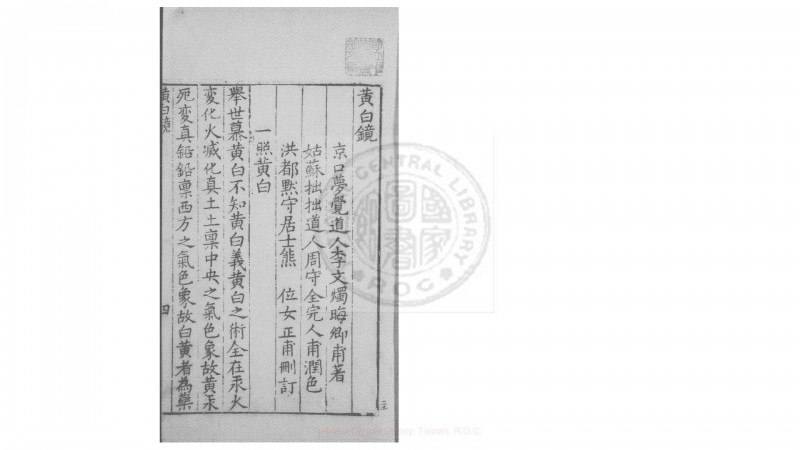 黃白鏡
京口夢覺道人李文燭晦卿甫著
姑蘇拙拙道人周守全完人甫潤色
洪都默守居士熊 位女正甫刪訂
一照黃白
舉世慕黃白不知黃白義黃白之術全在汞火
変化火滅化真土土稟中央之氣色象故黃汞
死変真鉛鉛稟西方之氣色象故白黃者為藥
黃白鏡
四
CENTRAL LIBRARY
國家圖書館
ROC